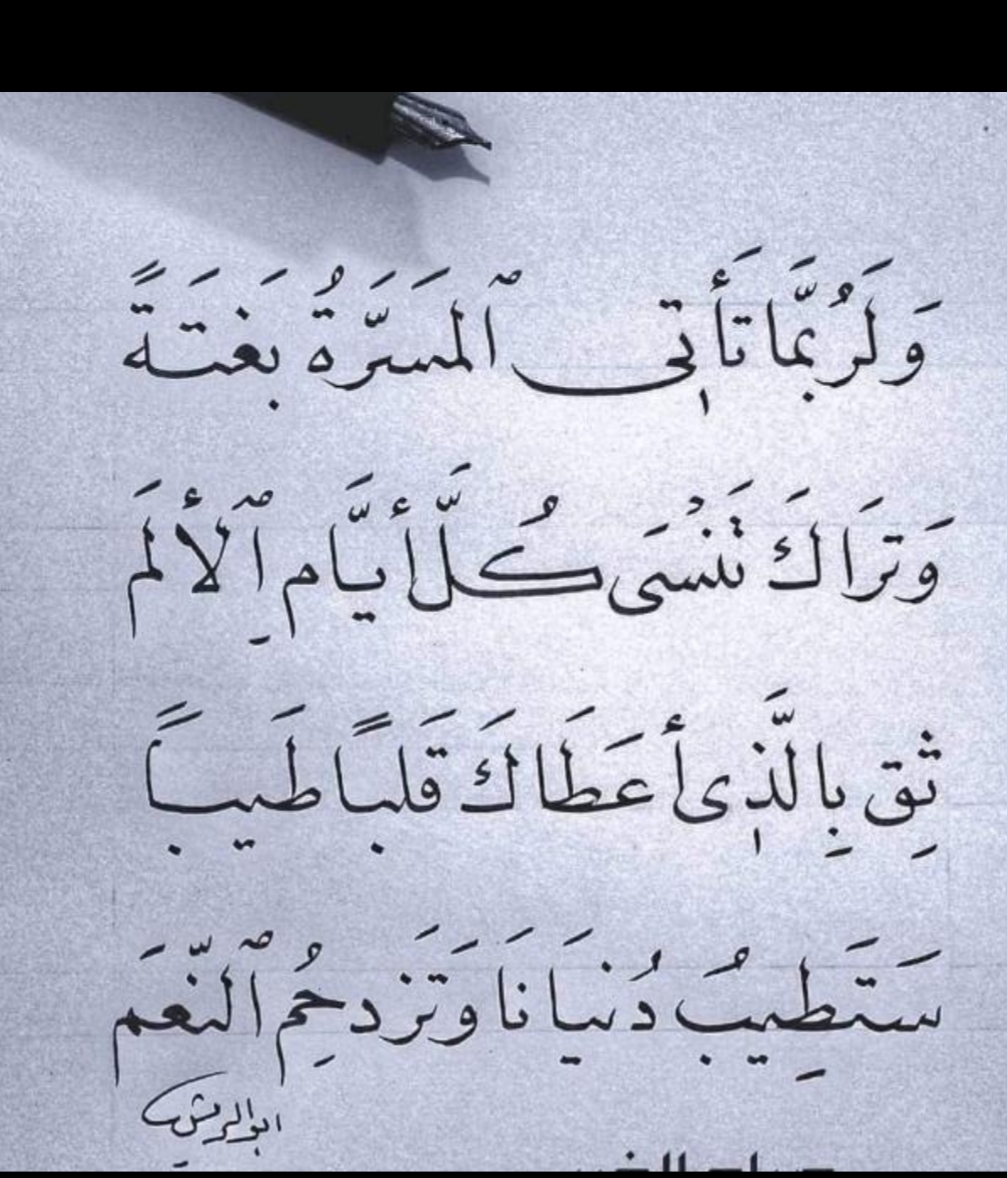 وَلَرُبَّمَا تَأْتِي ٱلمَسَرَّةُ بَغتَةً
وَتَرَاكَ تَنْسَى كُلَّ أيَّامِ ٱلألَم
ثِق بِالَّذِي أعطَاكَ قَلبًا طَيبًا
سَتَطِيبُ دُنيَانَا وَتَزدحِمُ ٱلنّعَم
ابو الريش